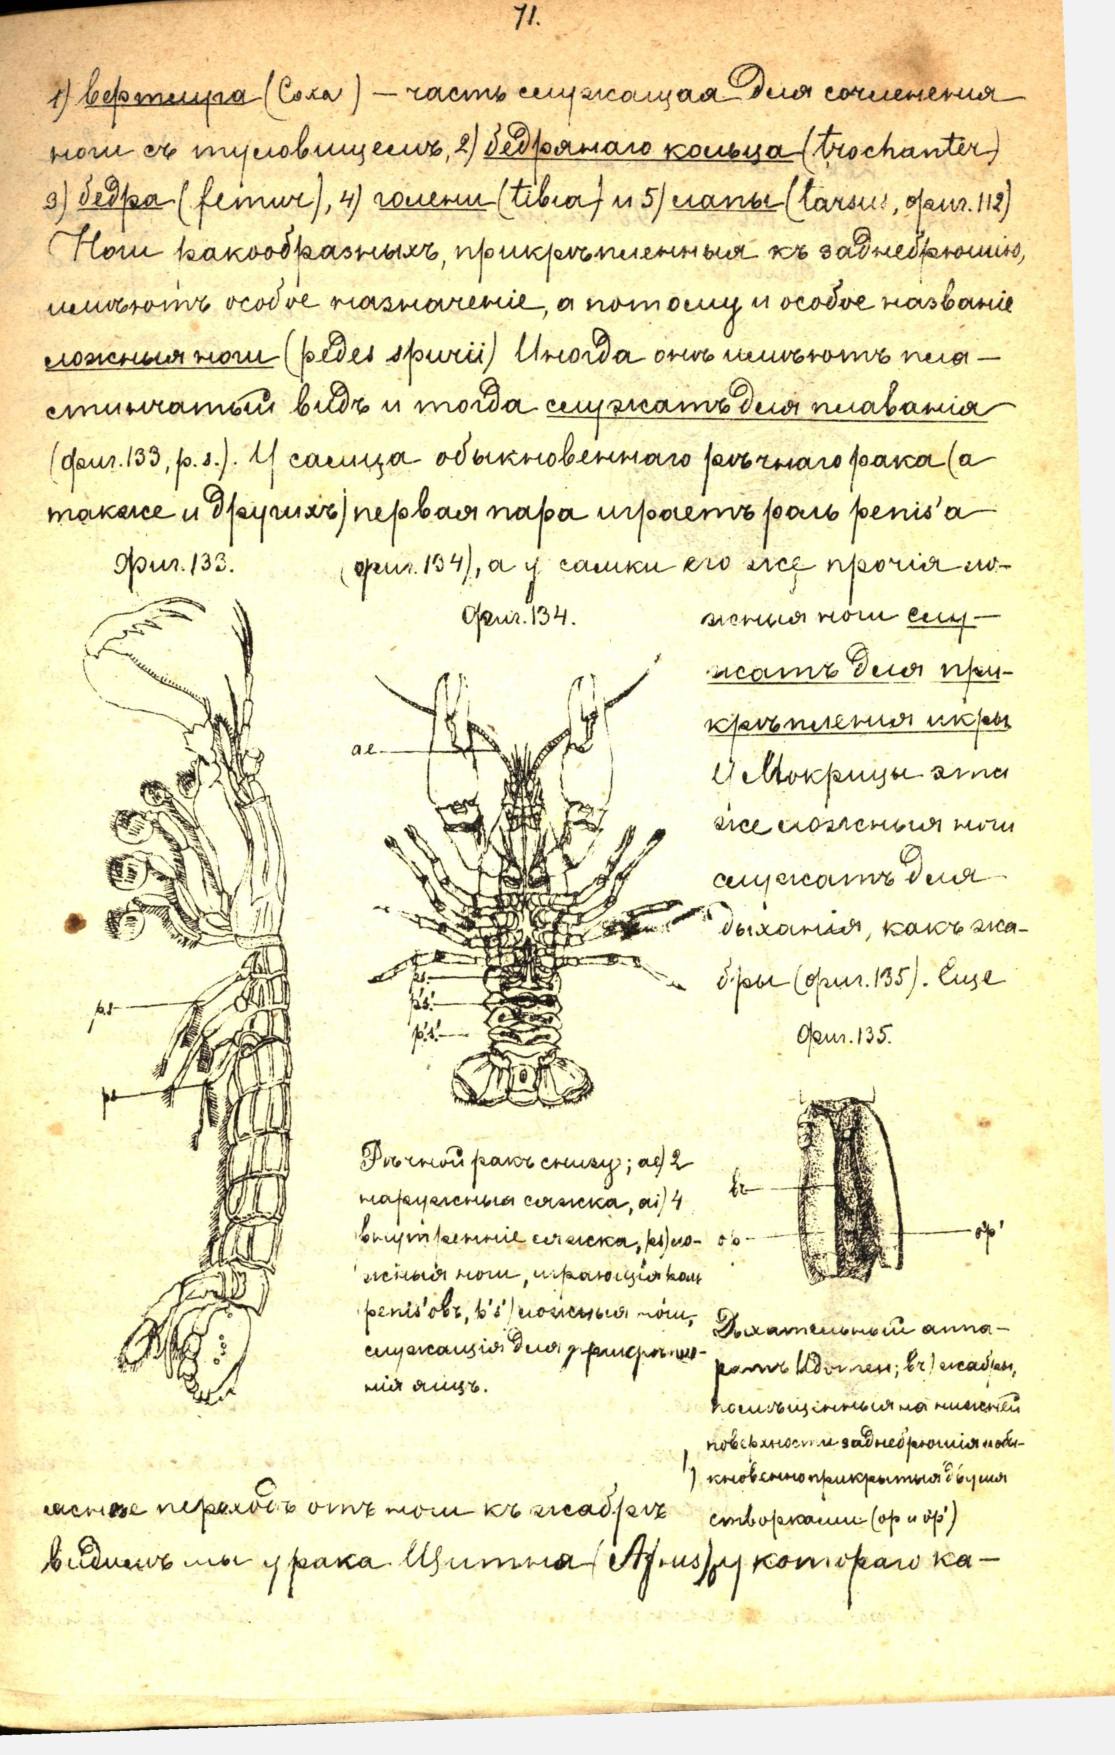 71.
1) вертлуга (Coxa) — часть служащая для сочленения
ноги съ туловищемъ, 2) бедрянаго кольца (trochanter)
3) бедра (femur), 4) голени (tibia) и 5) лапы (tarsus, фиг. 112)
Ноги ракообразныхъ, прикрѣпленныя къ заднебрюшію,
имѣютъ особое назначеніе, а потому и особое названіе
ложныя ноги (pedes spurii) Иногда онѣ имѣютъ пла-
стинчатый видъ и тогда служатъ для плаванія
(фиг. 133, p. s.). У самца обыкновеннаго рѣчнаго рака (а
также и другихъ) первая пара играетъ роль penis'a
(фиг. 134), а у самки его же прочія ло-
жныя ноги слу-
жатъ для при-
крѣпленія икры
У Мокрицы эти
же ложныя ноги
служатъ для
дыханія, какъ жа-
бры (фиг. 135). Еще
Фиг. 133.
ps
ps
Фиг. 134.
ae
ps
p's'
p's'
Рѣчной ракъ снизу; ae) 2
наружныя сяжка, ai) 4
внутренніе сяжка, ps) ло-
жныя ноги, играющія роль
penis'овъ, p's') ложныя ноги,
служащія для прикрѣпле-
нія яицъ.
Фиг. 135.
br
op
op'
Дыхательный аппа-
ратъ Идотеи; br) жабры,
помѣщенныя на нижней
поверхности заднебрюшія и обы-
кновенно прикрытыя двумя
створками (op и op')
яснѣе переходъ отъ ноги къ жабрѣ
видимъ мы у рака Щитня (Apus), у котораго ка-